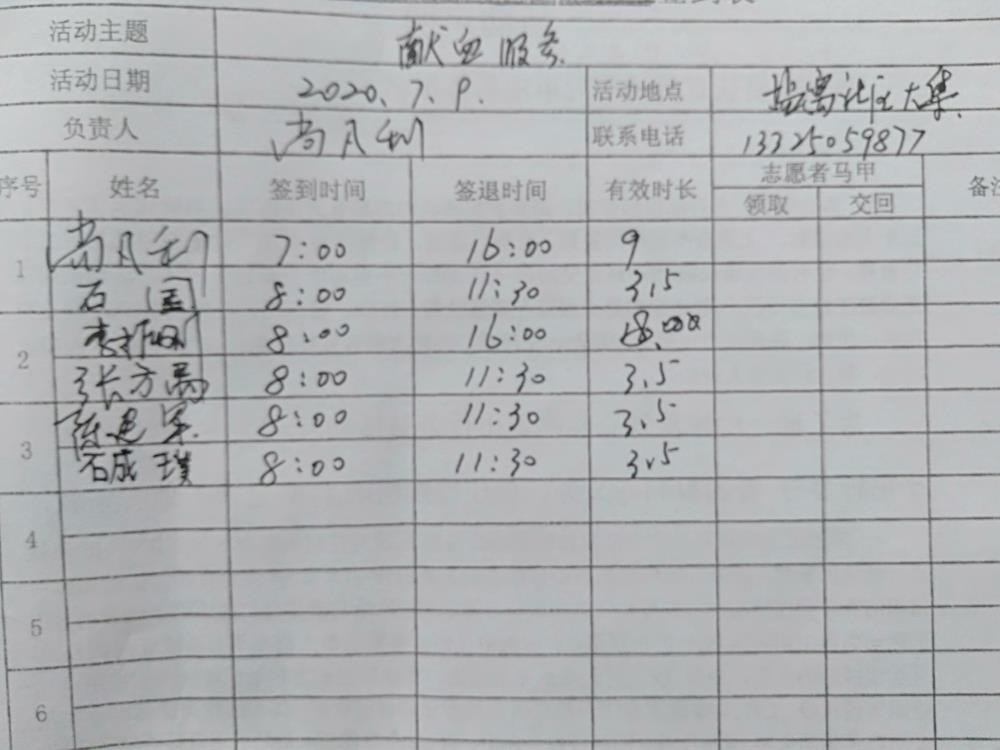 活动主题 献血服务
活动日期 2020.7.9. 活动地点 大集
负责人 尚凡利 联系电话 13325059877
序号 姓名 签到时间 签退时间 有效时长 志愿者马甲 备注
领取 交回
1 尚凡利 7:00 16:00 9
石国 8:00 11:30 3.5
2 李 8:00 16:00 8
张方 8:00 11:30 3.5
3 陈建军 8:00 11:30 3.5
石成璞 8:00 11:30 3.5
4
5
6